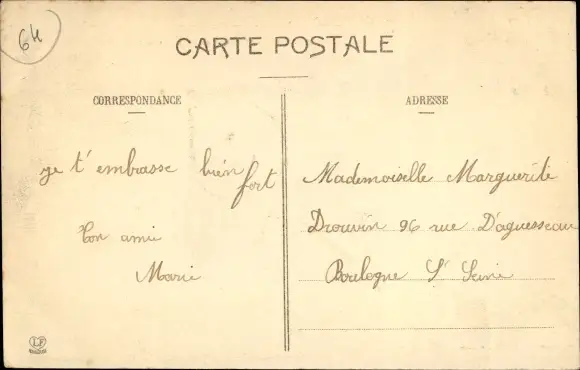 64
CARTE POSTALE
CORRESPONDANCE
ADRESSE
je t'embrasse bien
fort
ton amie
Marie
Mademoiselle Marguerite
Drouvin 96 rue D'aguesseau
Boulogne St Seine